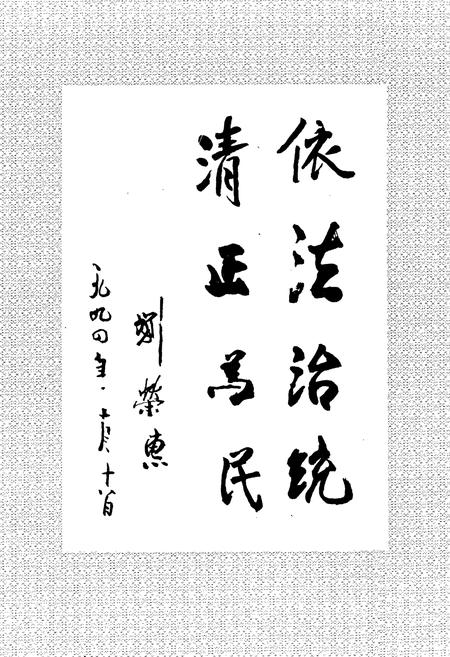 依法治统
清正为民
刘荣惠
一九九四年十月十八日